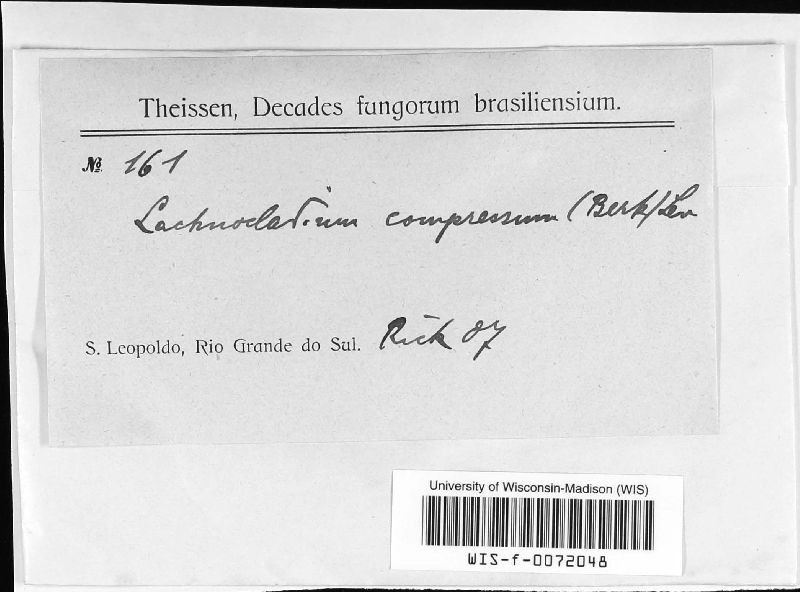 Theissen, Decades fungorum brasiliensium.
№ 161
Lachnocladium compressum (Berk) Lev
S. Leopoldo, Rio Grande do Sul. Rick 07
University of Wisconsin-Madison (WIS)
WIS-f-0072048